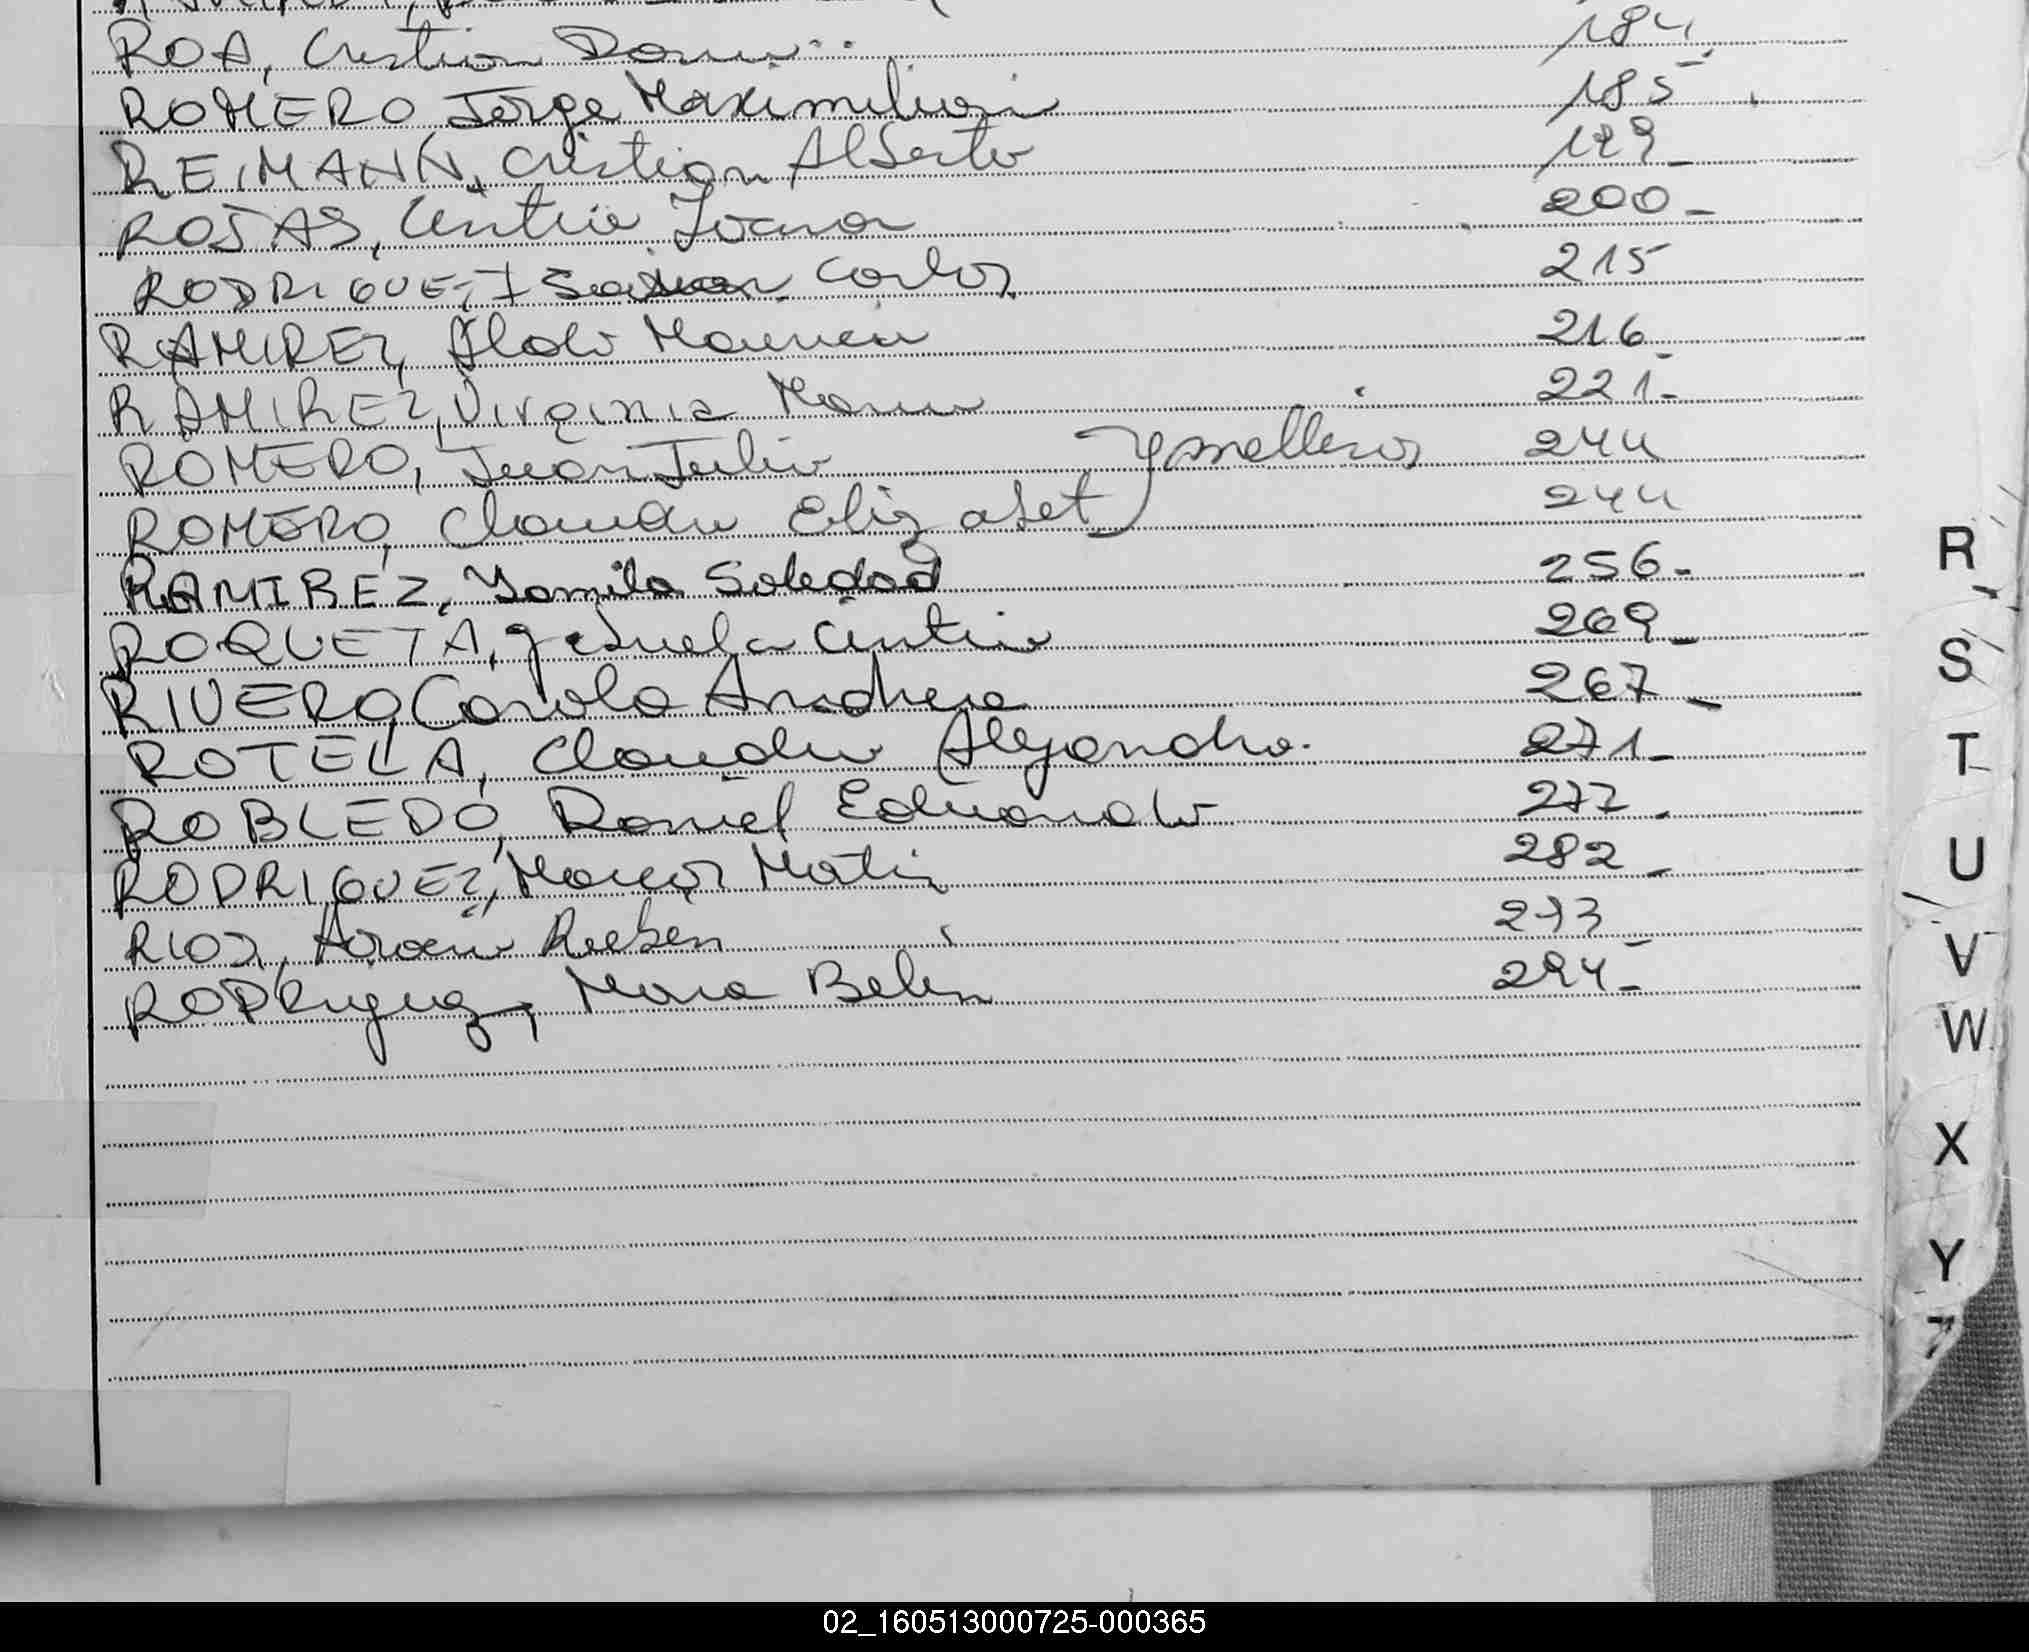 ROA, Cristian 184.
ROMERO Jorge Maximilian 185
REIMANN, Cristian Alberto 199-
ROJAS, Cintia Joana 200-
RODRIGUEZ, Carlos 215
RAMIREZ, Aldo 216-
RAMIREZ, Virginia Maria 221-
ROMERO, Juan Julio 244
y mellizos
ROMERO, Claudia Elizabet 244
RAMIREZ, Yamila Soledad 256-
ROQUETA, Cintia 269-
RIVERO, Carola Andrea 267-
ROTELA, Claudia Alejandra. 271-
ROBLEDO, Daniel Eduardo 277.
RODRIGUEZ, Marcos Matias 282-
RIOS, Ruben 293-
RODRIguez, Maria Belen 294-
R
S
T
U
V
W
X
Y
Z
02_160513000725-000365